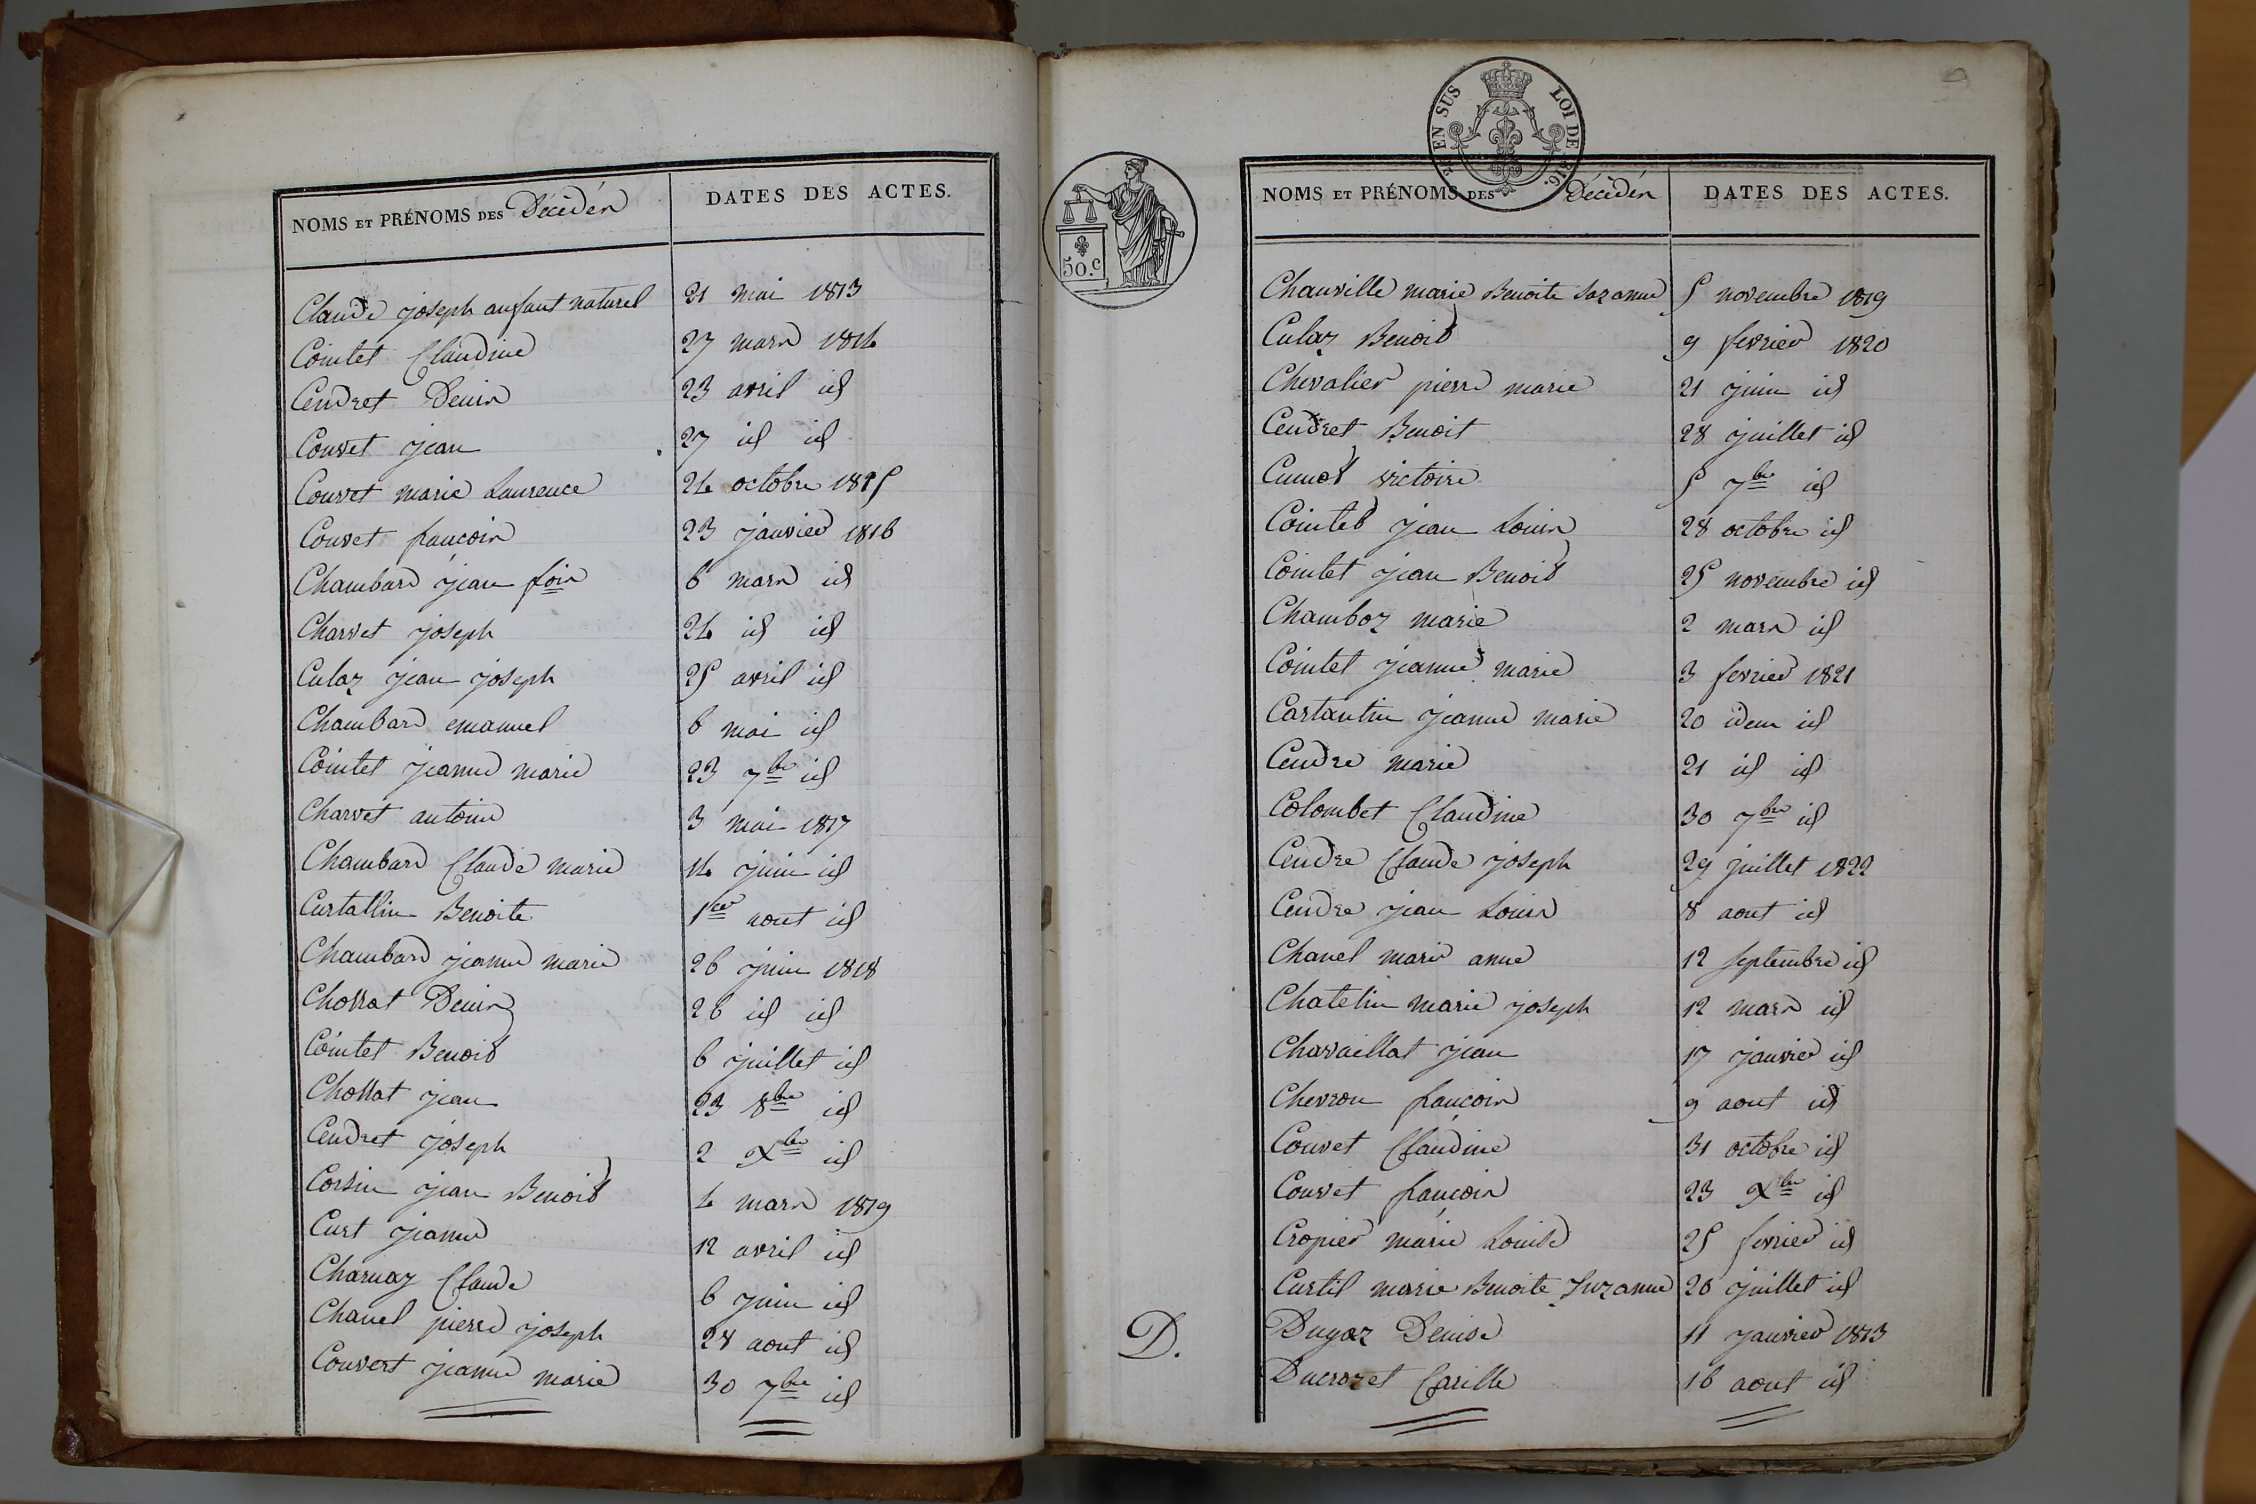 NOMS ET PRÉNOMS DES Décédés
DATES DES ACTES.
Claude joseph anfant naturel 21 mai 1813
Cointet Claudine 27 mars 1814
Cendret Denis 23 avril id
Couvet jean 27 id id
Couvet marie Laurence 24 octobre 1815
Couvet francois 23 janvier 1816
Chambard jean fois 6 mars id
Charvet joseph 24 id id
Culaz jean joseph 25 avril id
Chambard emanuel 6 mai id
Cointet jeanne marie 23 7bre id
Charvet antoine 3 mai 1817
Chambard Claude marie 14 juin id
Curtallin Benoite 1er aout id
Chambard jeanne marie 26 juin 1818
Chossat Denis 26 id id
Cointet Benoit 6 juillet id
Chossat jean 23 8bre id
Cendret joseph 2 Xbre id
Corsin jean Benoit 4 mars 1819
Curt jeanne 12 avril id
Charnay Claude 6 juin id
Chanel pierre joseph 28 aout id
Couvert jeanne marie 30 7bre id
EN SUS LOI DE 1816.
50.c
NOMS ET PRÉNOMS DES Décédés
DATES DES ACTES.
Chauville marie Benoite Sazanne 5 novembre 1819
Culaz Benoit 9 fevrier 1820
Chevalier pierre marie 21 juin id
Cendret Benoit 28 juillet id
Cumot victoire 5 7bre id
Cointet jean Louis 28 octobre id
Cointet jean Benoit 25 novembre id
Chamboz marie 2 mars id
Cointet jeanne marie 3 fevrier 1821
Cartantin jeanne marie 20 idem id
Cendre marie 21 id id
Colombet Claudine 30 7bre id
Cendre Claude joseph 29 juillet 1822
Cendre jean Louis 8 aout id
Chanel marie anne 12 septembre id
Chatelin marie joseph 12 mars id
Chavaillat jean 17 janvier id
Chevron francois 9 aout id
Couvet Claudine 31 octobre id
Couvet francois 23 Xbre id
Cropier marie Louise 25 fevrier id
Curtil marie Benoite Suzanne 20 juillet id
D. Dugaz Denise 11 janvier 1813
Ducrozet Carille 16 aout id